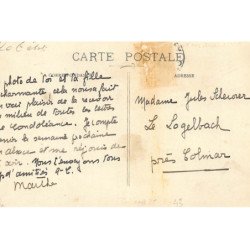 CARTE POSTALE
ADRESSE
photo de toi et ta fille
charmante, cela nous a fait
vrai plaisir de la revoir
milieu de toutes les lettres
de Condoléance. Je compte
venir la semaine prochaine
en alsace et me réjouis de
avoir. Nous t'envoyons tous
d'amitiés
Marthe
Madame Jules Scherrer
Le Logelbach
près Colmar